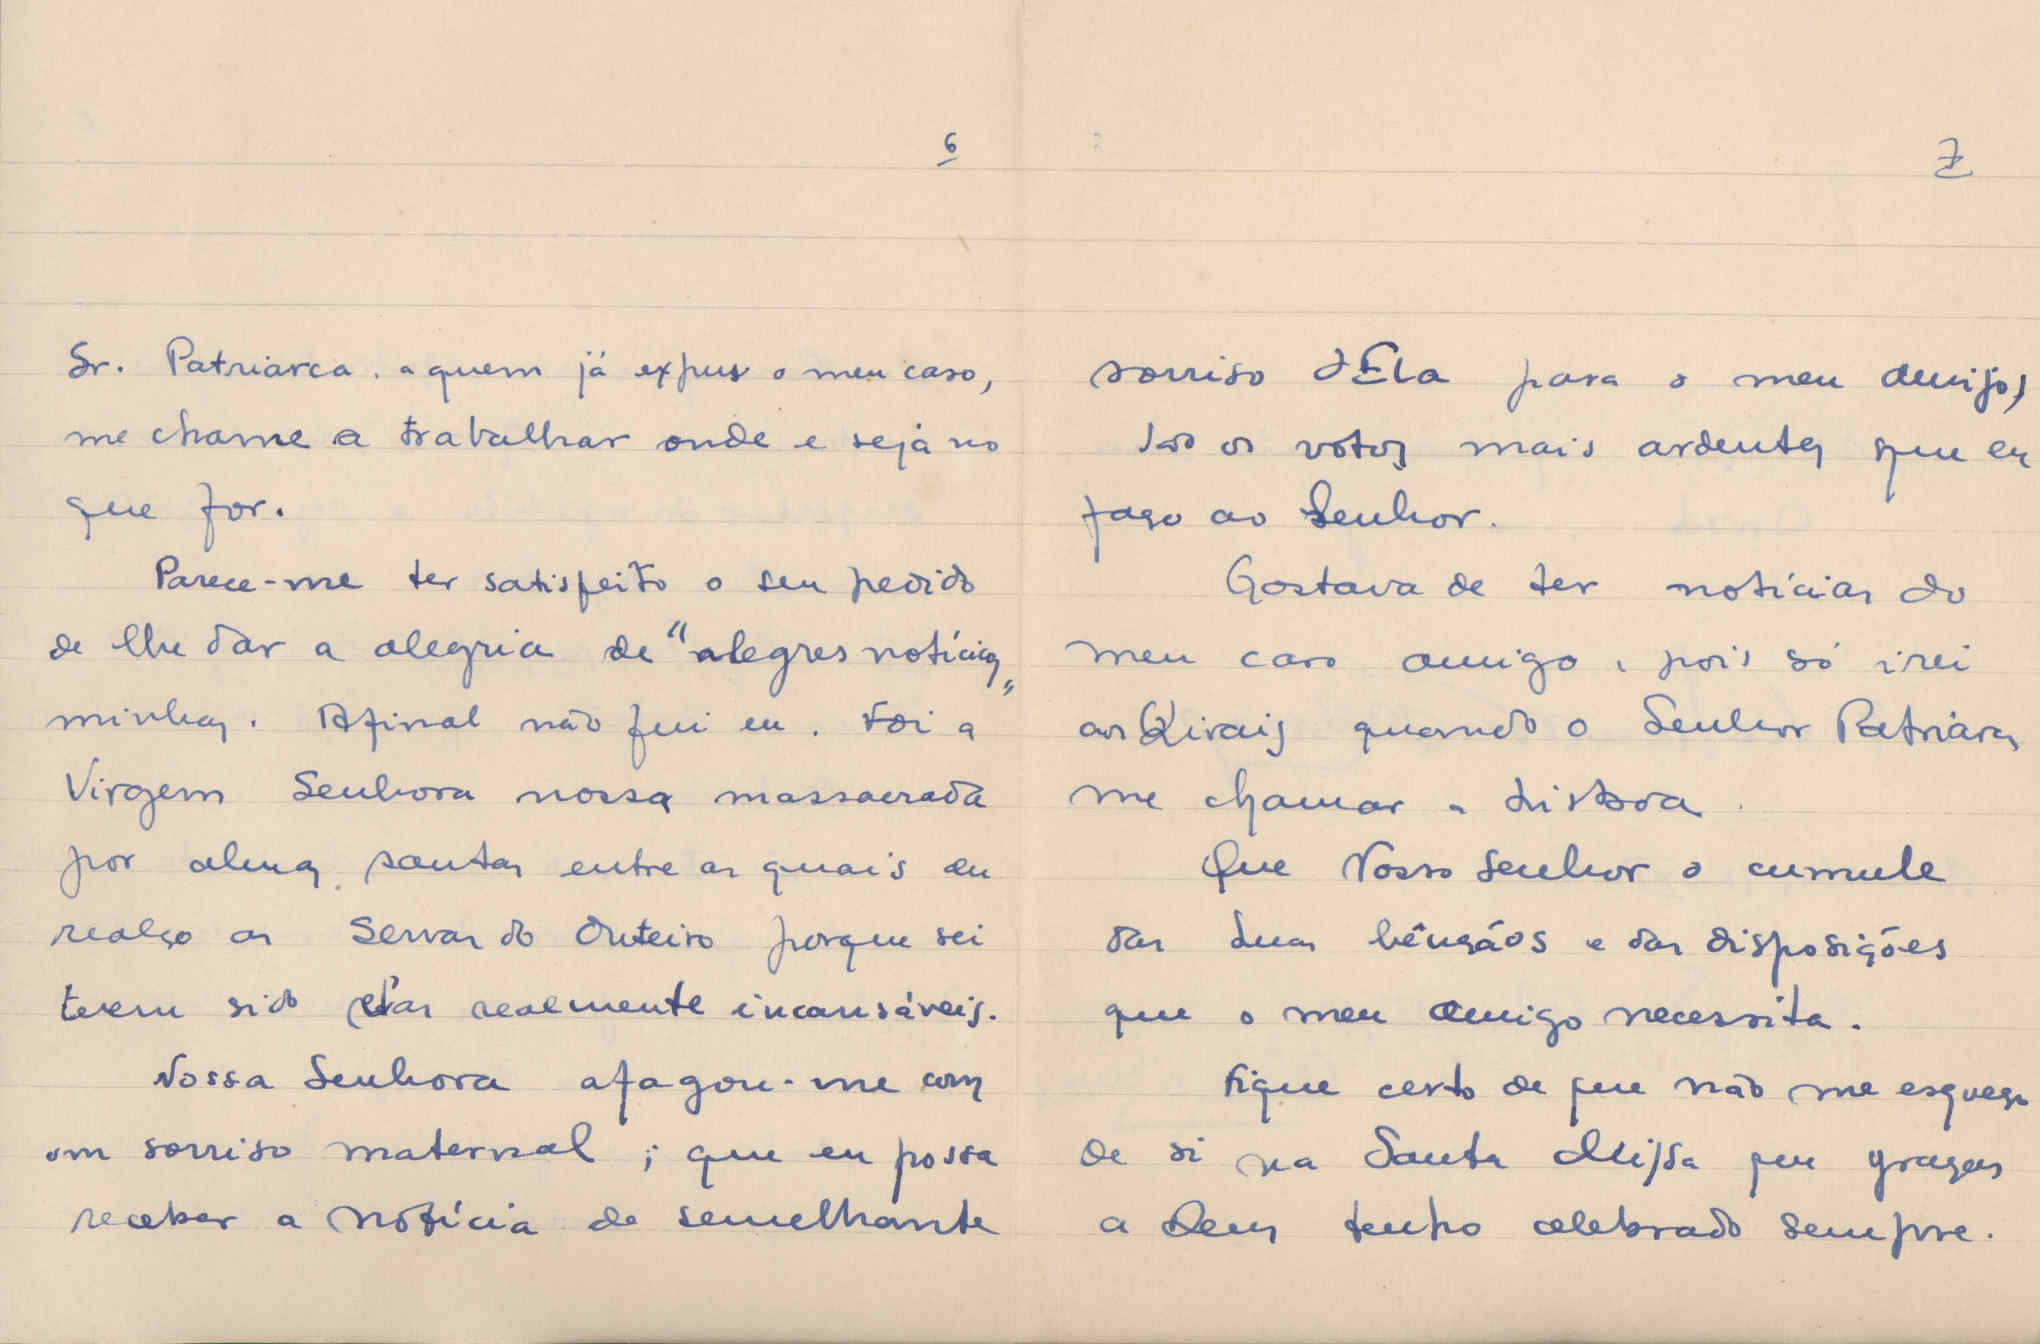 6
Sr. Patriarca, a quem já expus o meu caso,
me chame a trabalhar onde e seja no
que for.
Parece-me ter satisfeito o seu pedido
de lhe dar a alegria de "alegres notícias"
minhas. Afinal não fui eu. Foi a
Virgem Senhora nossa massacrada
por almas santas entre as quais eu
realço as Servas do Outeiro porque sei
terem sido elas realmente incansáveis.
Nossa Senhora afagou-me com
um sorriso maternal; que eu possa
receber a notícia de semelhante
7
sorriso d'Ela para o meu amigo,
são os votos mais ardentes que eu
faço ao Senhor.
Gostava de ter notícias do
meu caro amigo, pois só irei
aos quando o Senhor Patriarca
me chamar a Lisboa.
Que Nosso Senhor o cumule
das Suas bênçãos e das disposições
que o meu amigo necessita.
Fique certo de que não me esqueço
de si na Santa Missa que graças
a Deus tenho celebrado sempre.